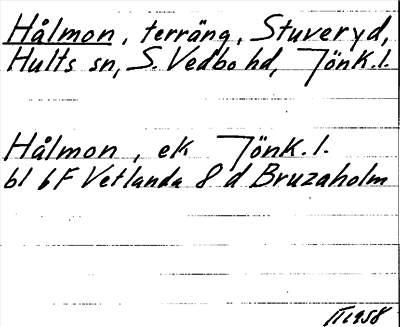 Hålmon, terräng, Stuveryd,
Hults sn, S. Vedbo hd, Jönk.l.
Hålmon, ek Jönk.l.
bl 6F Vetlanda 8 d Bruzaholm
1958